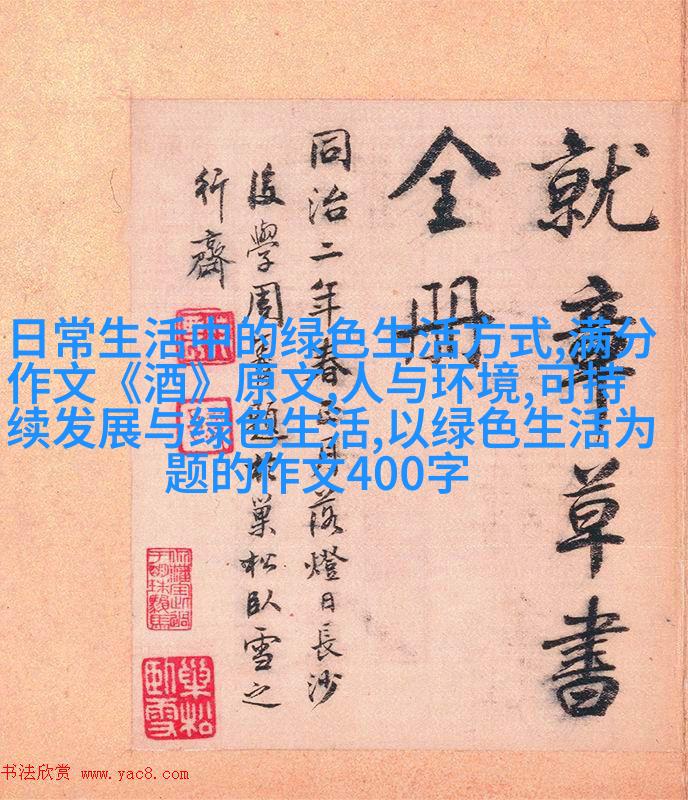 就章草書
全册
同治二年春正月落燈日長沙
後學周題於巢松臥雪之
行齋
巢松臥雪
日常生活中的绿色生活方式,满分
作文《酒》原文,人与环境,可持
续发展与绿色生活,以绿色生活为
题的作文400字
书法欣赏 www.yac8.com